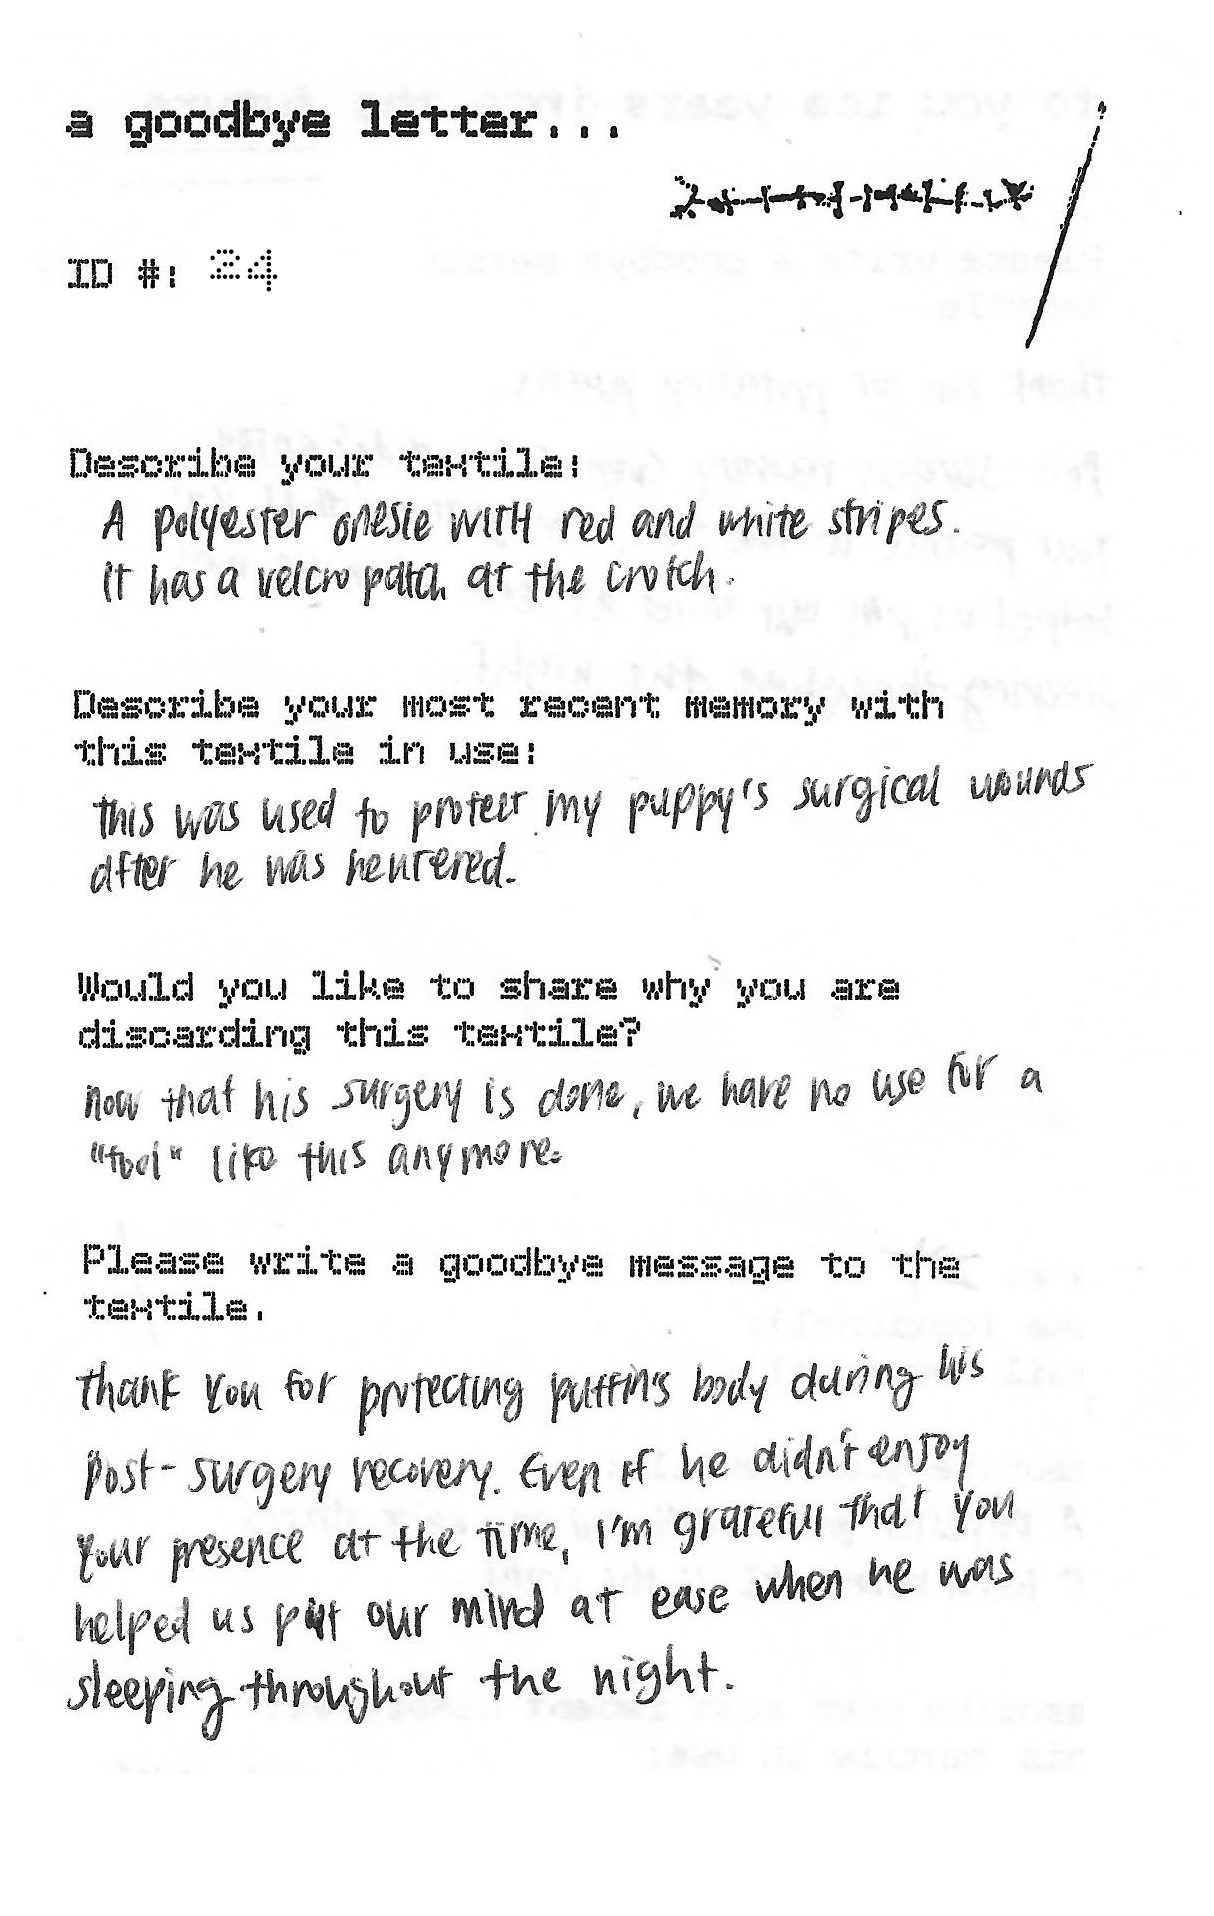 a goodbye letter...
ID #: 24
Describe your textile:
A polyester onesie with red and white stripes.
It has a velcro patch at the crotch.
Describe your most recent memory with
this textile in use:
this was used to protect my puppy's surgical wounds
after he was neutered.
Would you like to share why you are
discarding this textile?
now that his surgery is done, we have no use for a
"tool" like this anymore.
Please write a goodbye message to the
textile.
thank you for protecting puffin's body during his
post-surgery recovery. Even if he didn't enjoy
your presence at the time, I'm grateful that you
helped us put our mind at ease when he was
sleeping throughout the night.